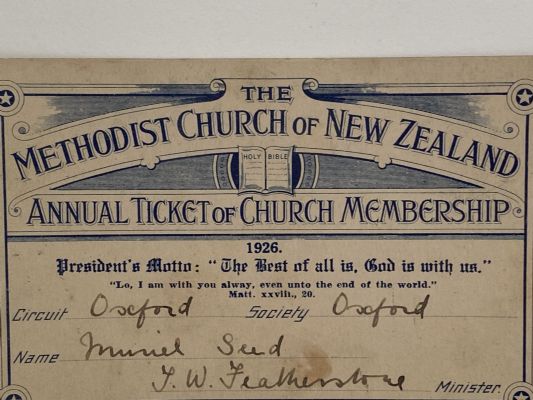 THE
METHODIST CHURCH OF NEW ZEALAND
HOLY BIBLE
ANNUAL TICKET OF CHURCH MEMBERSHIP
1926.
President's Motto: "The Best of all is, God is with us."
"Lo, I am with you alway, even unto the end of the world."
Matt. xxviii., 20.
Circuit Oxford Society Oxford
Name Muriel Seed
T. W. Featherstone Minister.